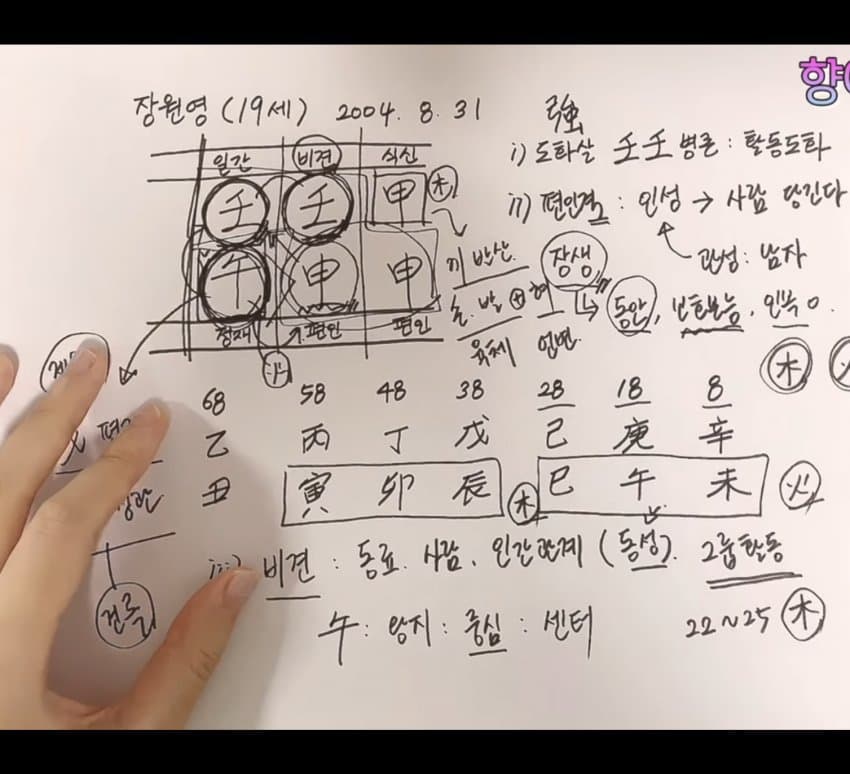 향
장원영 (19세) 2004. 8. 31 強
일간 비견 식신
壬 壬 甲 木
午 申 申
정재 편인 편인
火
i) 도화살 壬壬 병존 : 활동도화
ii) 편인격 : 인성 → 사람 당긴다
관성 : 남자
끼 발산
장생
동안, 보호본능, 인복 O.
육체 언변
木
68 58 48 38 28 18 8
乙 丙 丁 戊 己 庚 辛
丑 寅 卯 辰 木 巳 午 未 火
건록
iii) 비견 : 동료. 사람. 인간관계 (동성). 그룹활동
午 : 왕지 : 중심 : 센터 22~25 木